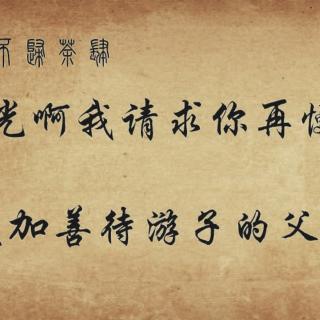 不歸茶肆
光啊我请求你再慢
加善待游子的父